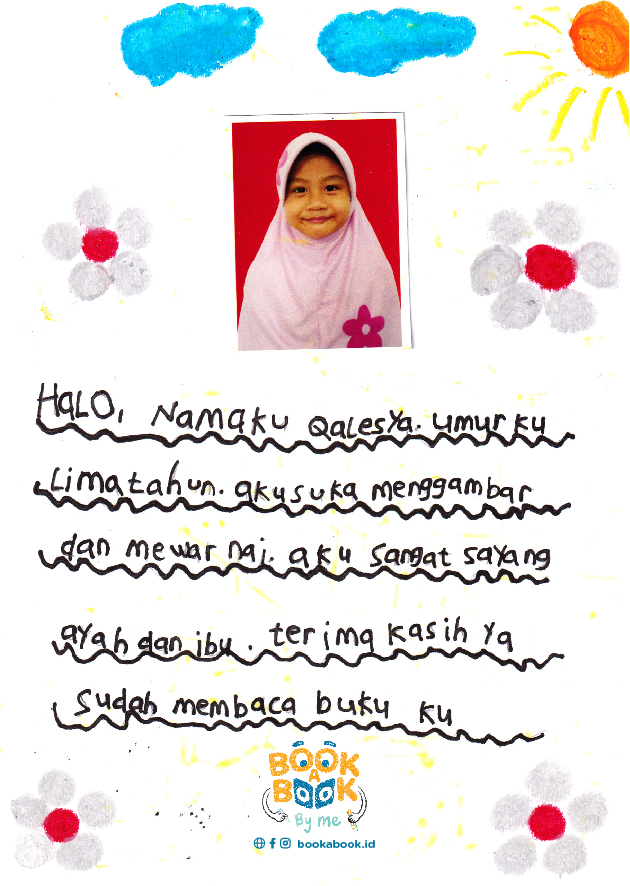 HaLO, Namaku Qalesya. umurku
Lima tahun. aku suka menggambar
dan mewarnai. aku sangat sayang
ayah dan ibu. terima kasih ya
Sudah membaca buku ku
BOOK
A
BOOK
By me
bookabook.id